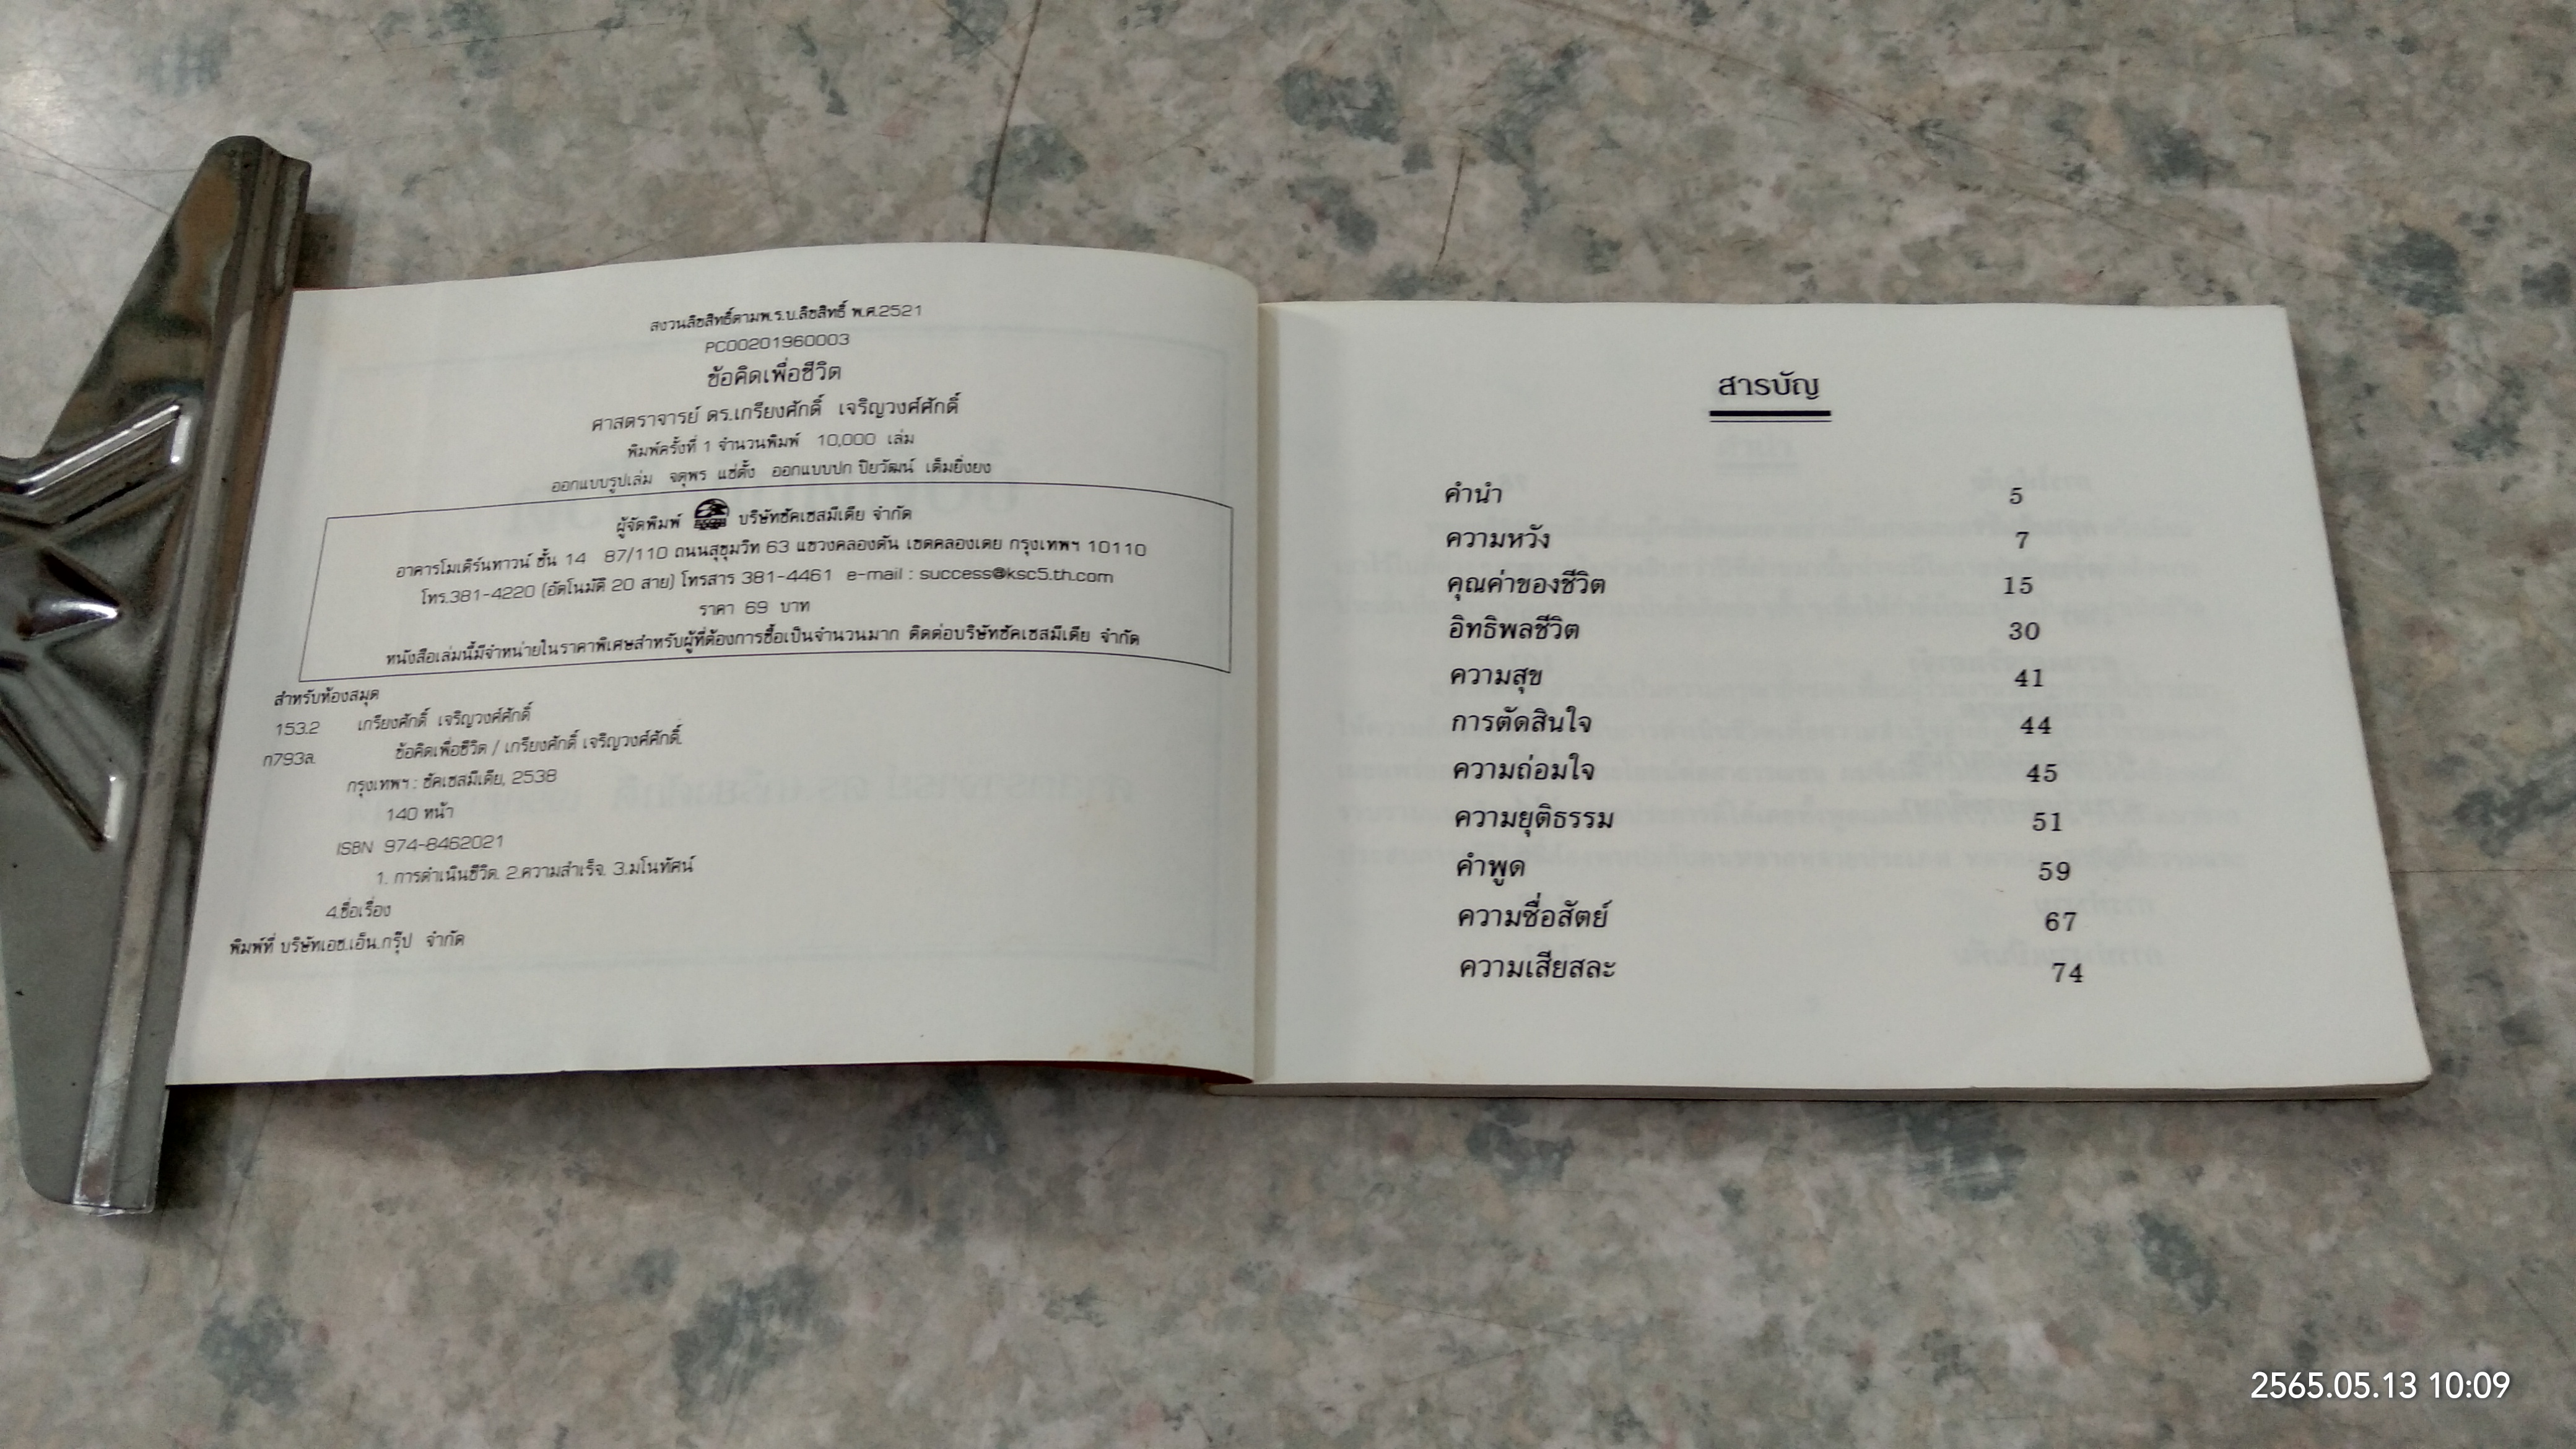 สงวนลิขสิทธิ์ตามพ.ร.บ.ลิขสิทธิ์ พ.ศ.2521
PC00201960003
ข้อคิดเพื่อชีวิต
ศาสตราจารย์ ดร.เกรียงศักดิ์ เจริญวงศ์ศักดิ์
พิมพ์ครั้งที่ 1 จำนวนพิมพ์ 10,000 เล่ม
ออกแบบรูปเล่ม จตุพร แซ่ตั้ง ออกแบบปก ปิยวัฒน์ เต็มยิ่งยง
ผู้จัดพิมพ์ บริษัทซัคเซสมีเดีย จำกัด
อาคารโมเดิร์นทาวน์ ชั้น 14 87/110 ถนนสุขุมวิท 63 แขวงคลองตัน เขตคลองเตย กรุงเทพฯ 10110
โทร.381-4220 (อัตโนมัติ 20 สาย) โทรสาร 381-4461 e-mail : success@ksc5.th.com
ราคา 69 บาท
หนังสือเล่มนี้มีจำหน่ายในราคาพิเศษสำหรับผู้ที่ต้องการซื้อเป็นจำนวนมาก ติดต่อบริษัทซัคเซสมีเดีย จำกัด
สำหรับห้องสมุด
153.2 เกรียงศักดิ์ เจริญวงศ์ศักดิ์
ก793ล. ข้อคิดเพื่อชีวิต / เกรียงศักดิ์ เจริญวงศ์ศักดิ์.
กรุงเทพฯ : ซัคเซสมีเดีย, 2538
140 หน้า
ISBN 974-8462021
1. การดำเนินชีวิต. 2.ความสำเร็จ. 3.มโนทัศน์
4.ชื่อเรื่อง
พิมพ์ที่ บริษัทเอช.เอ็น.กรุ๊ป จำกัด
สารบัญ
คำนำ 5
ความหวัง 7
คุณค่าของชีวิต 15
อิทธิพลชีวิต 30
ความสุข 41
การตัดสินใจ 44
ความถ่อมใจ 45
ความยุติธรรม 51
คำพูด 59
ความซื่อสัตย์ 67
ความเสียสละ 74
2565.05.13 10:09